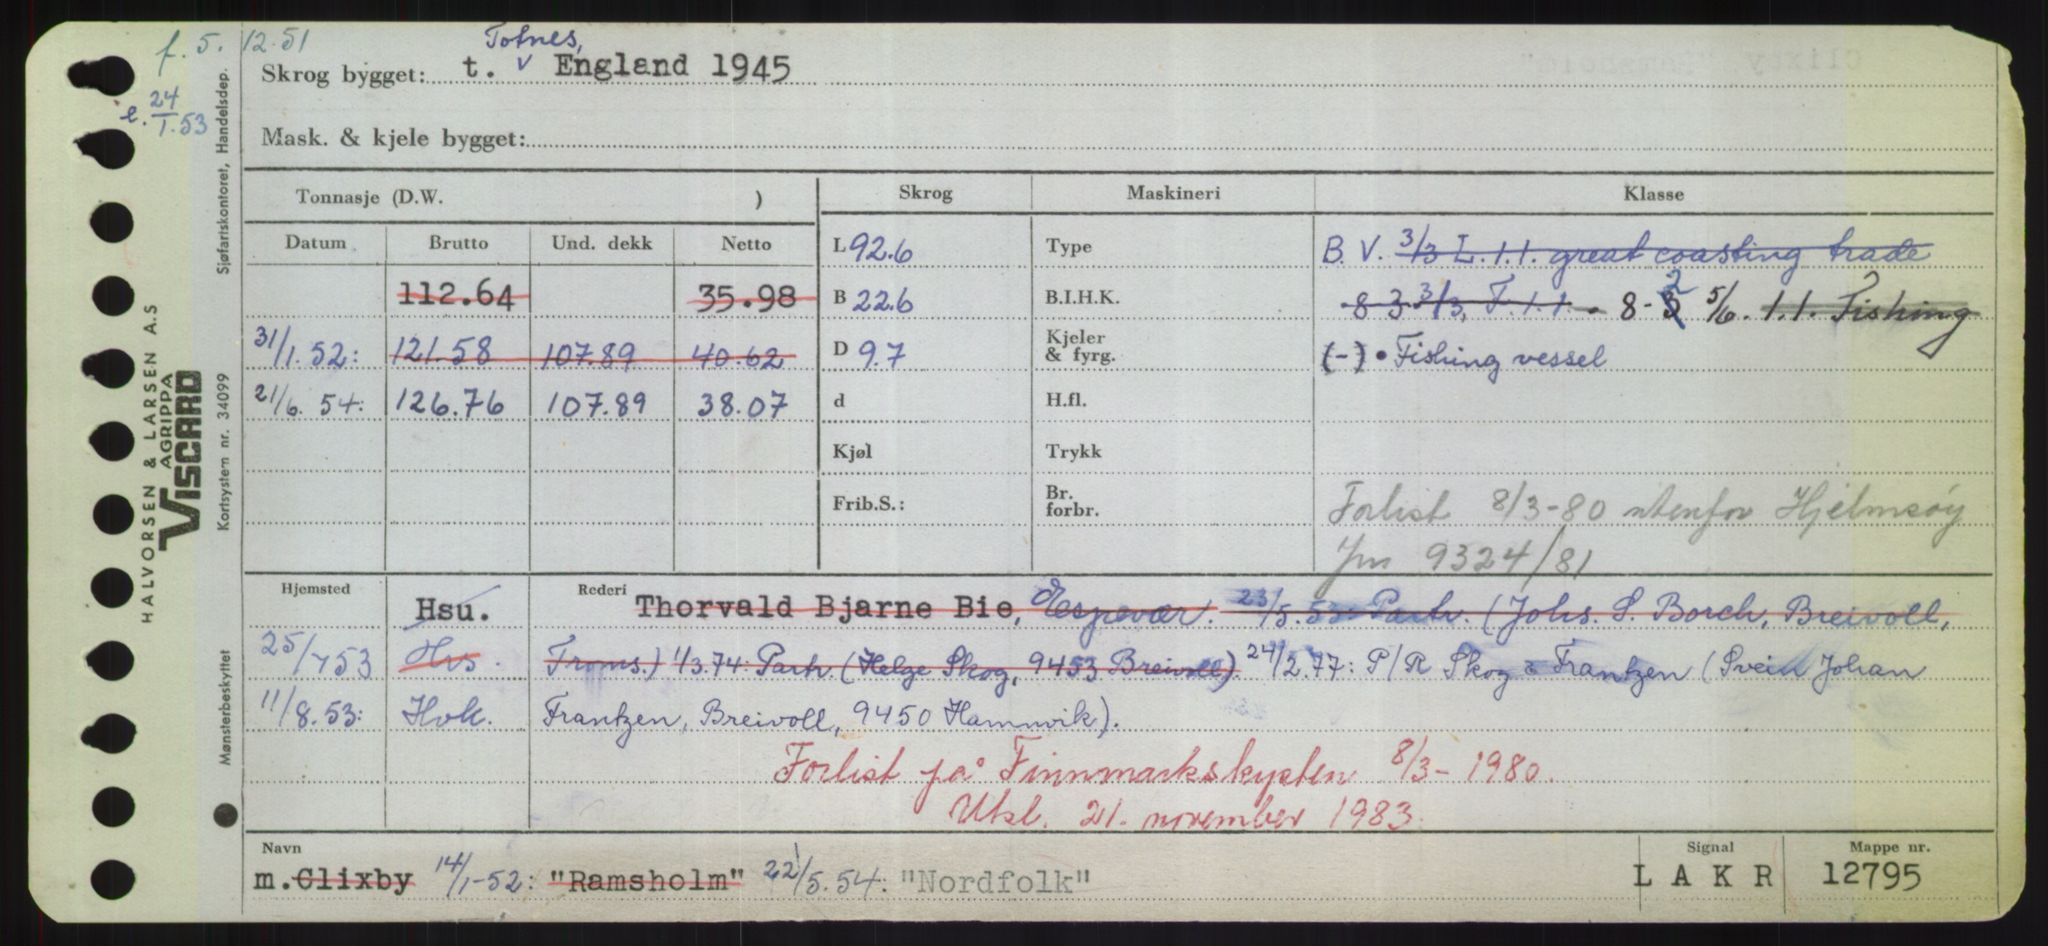 f. 5. 12.51
e. 24/1.53
Totnes,
Skrog bygget: t. v England 1945
Mask. & kjele bygget:
Tonnasje (D.W. )
Skrog
Maskineri
Klasse
Datum
Brutto
Und. dekk
Netto
L 92.6
Type
B. V. 3/3 L. 1.1. great coasting trade
112.64
35.98
B 22.6
B.I.H.K.
8 3 3/3, F. 1.1. - 8-3 2 5/6. 1.1. Fishing
31/1. 52: 121.58 107.89 40.62
D 9.7
Kjeler
& fyrg.
(-) • Fishing vessel
21/6. 54: 126.76 107.89 38.07
d
H.fl.
Kjøl
Trykk
Frib.S.:
Br.
forbr.
Forlist 8/3-80 utenfor Hjelmsøy
Jm 9324/81
Hjemsted
Hsu.
Rederi
Thorvald Bjarne Bie, Espevær. 23/5.53 Partr. (Johs. S. Borch, Breivoll,
25/7 53 Hvs.
Troms.) 1/3.74: Partr. (Helge Skog, 9453 Breivoll). 24/2.77: P/R Skog & Frantzen (Svein Johan
11/8.53: Hvk.
Frantzen, Breivoll, 9450 Hamnvik).
Forlist på Finnmarkskysten 8/3-1980.
Utsl. 21. november 1983.
Navn
Signal
Mappe nr.
m. Clixby 14/1-52: "Ramsholm" 22/5.54: "Nordfolk"
L A K R
12795
HALVORSEN & LARSEN A.S
AGRIPPA
VISCARD
Mønsterbeskyttet Kortsystem nr. 34099 Sjøfartskontoret, Handelsdep.